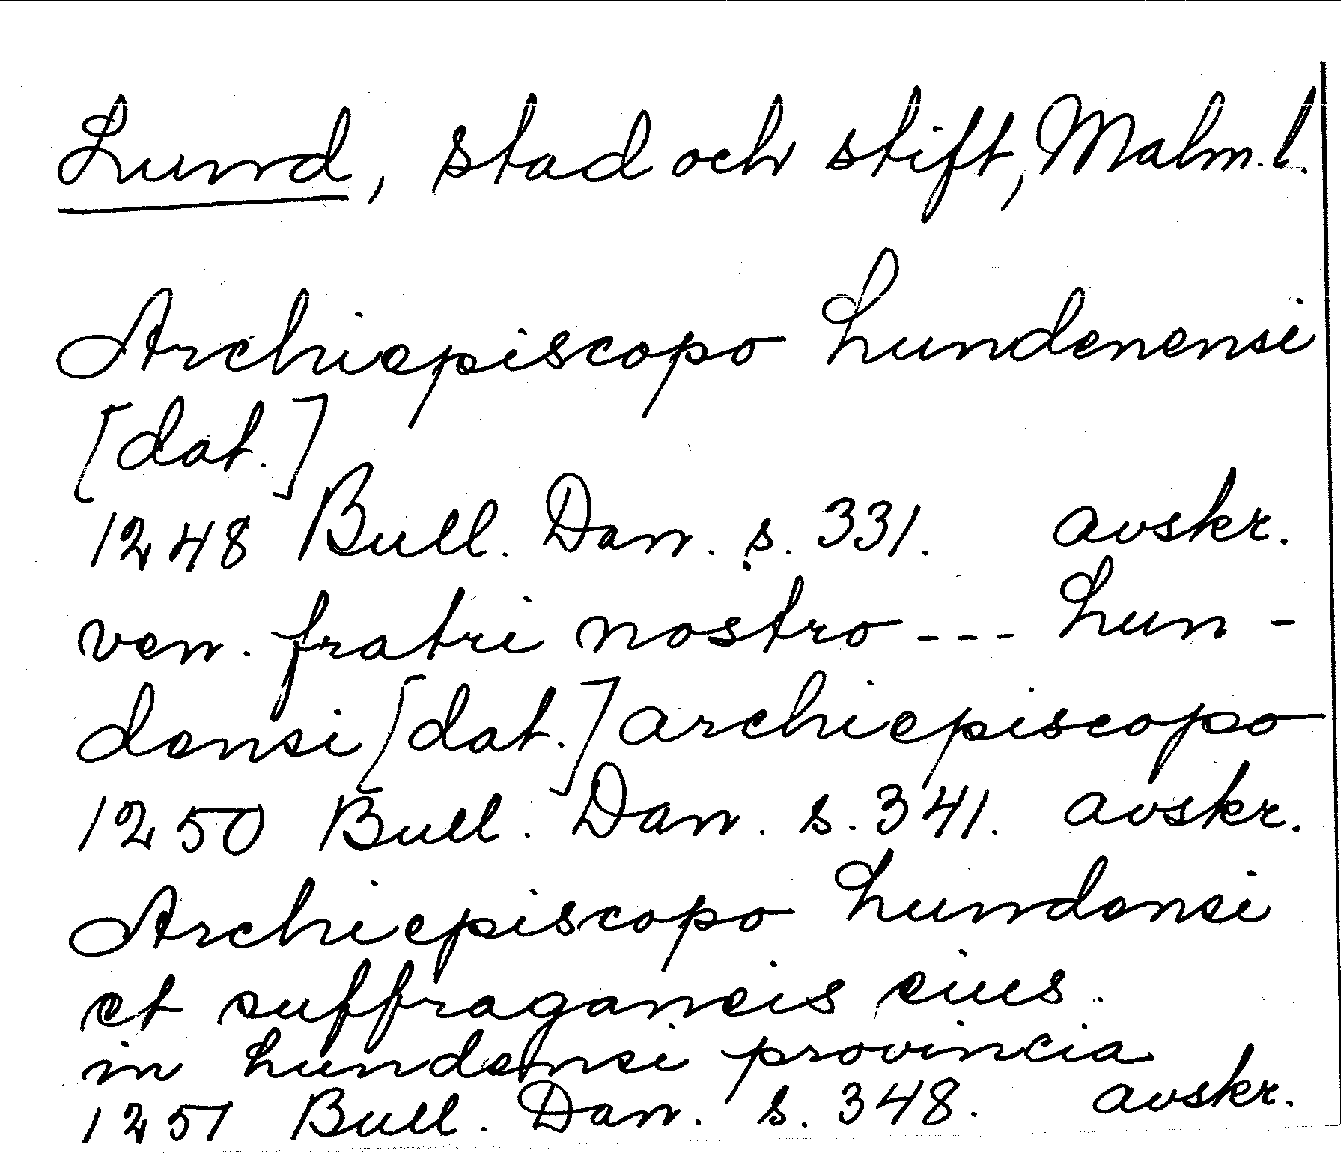 Lund, stad och stift, Malm.l.
Archiepiscopo Lundenensi
[dat.]
1248 Bull. Dan. s. 331. avskr.
ven. fratri nostro --- Lun-
densi [dat.] archiepiscopo
1250 Bull. Dan. s. 341. avskr.
Archiepiscopo Lundensi
et suffraganeis eius.
in Lundensi provincia
1251 Bull. Dan. s. 348. avskr.